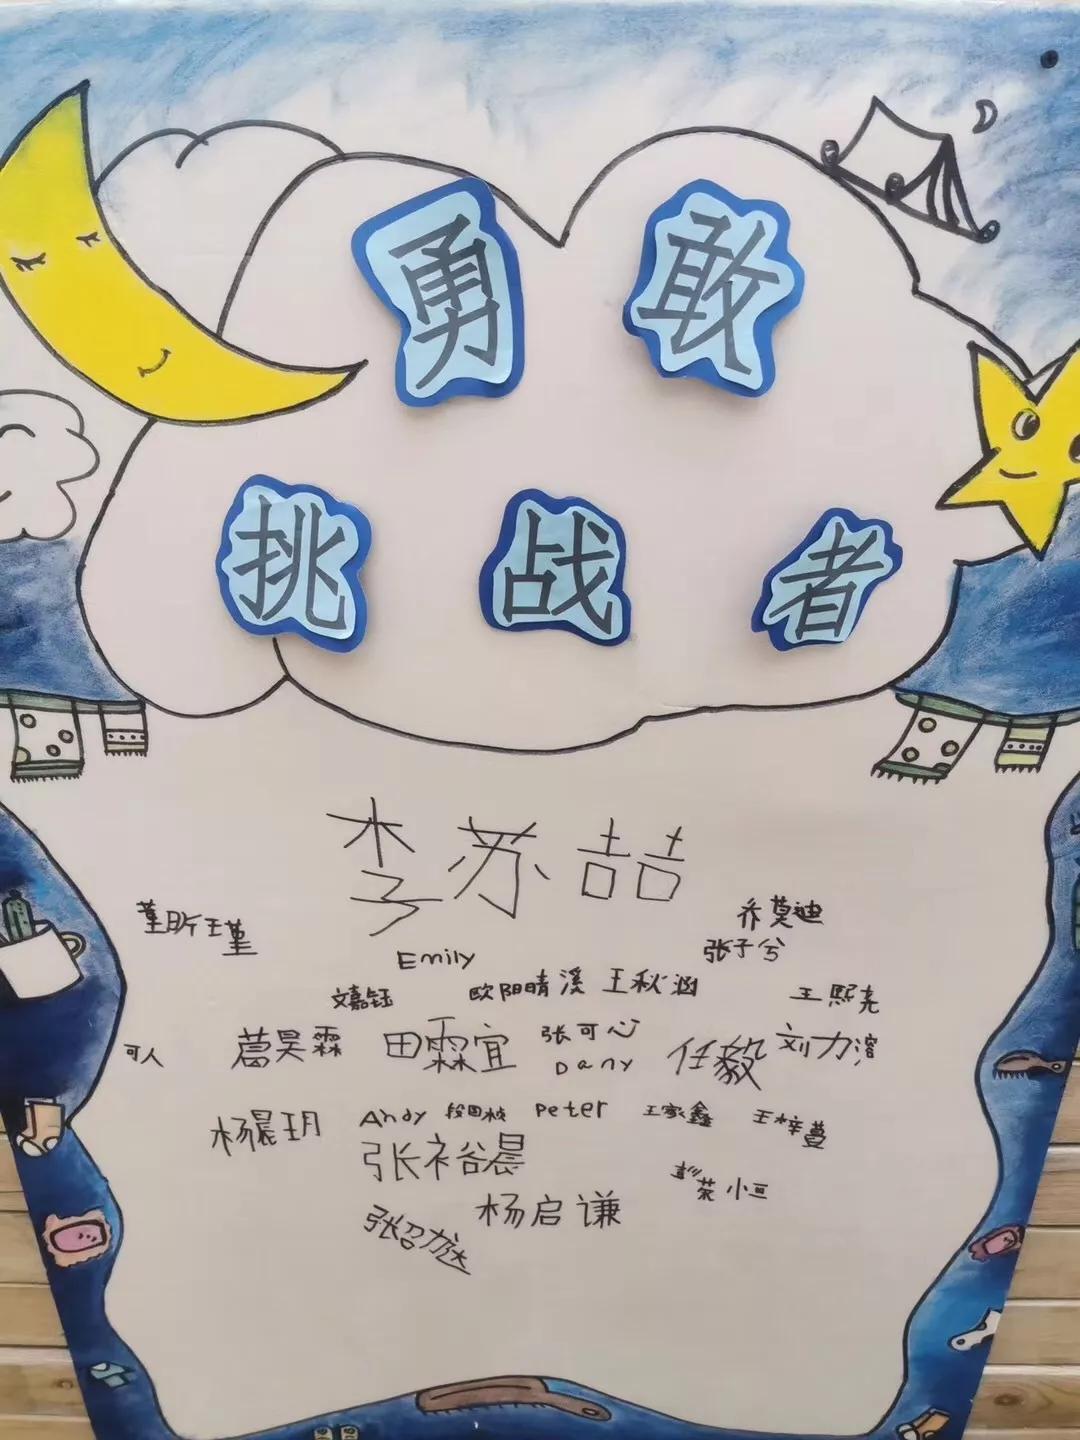 勇敢
挑战者
李苏喆
乔莫迪
张子兮
Emily
文嘉钰
欧阳晴溪
王秋涵
王熙尧
可人
葛昊霖
田霖宜
张可心
Dany
任毅
刘力溶
杨晨玥
Andy
Peter
王家鑫
王梓萱
张裕晨
杨启谦